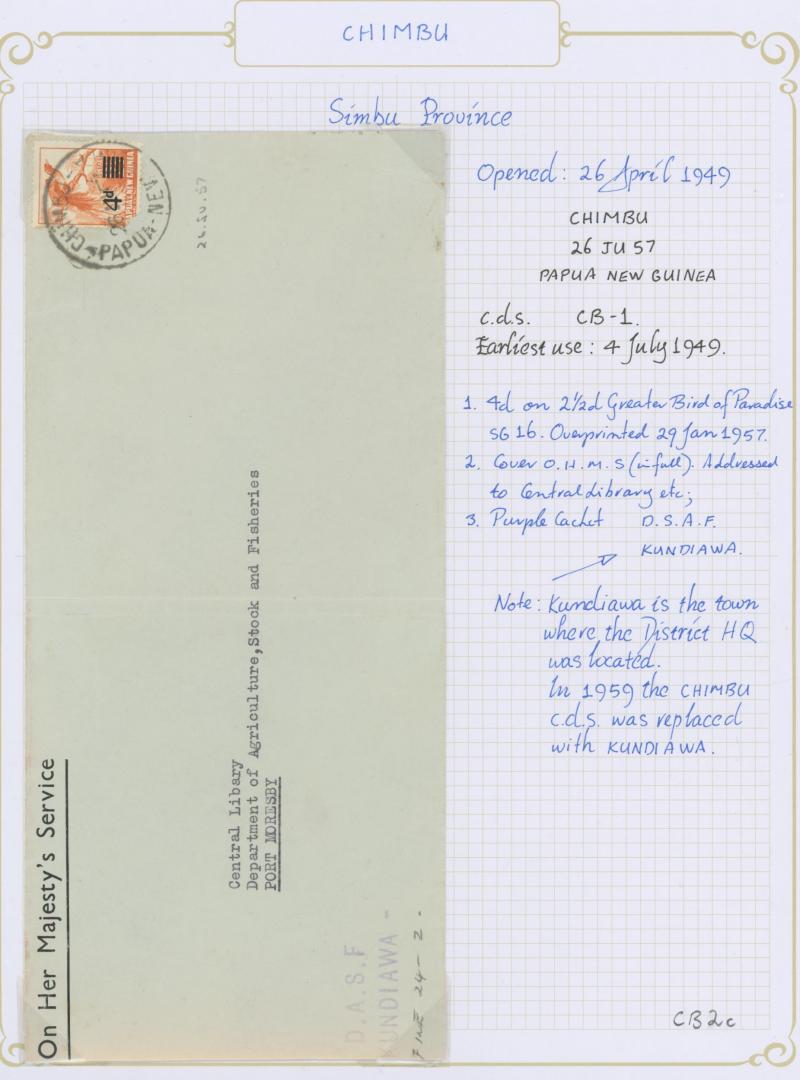 CHIMBU
Simbu Province
Opened: 26 April 1949
CHIMBU
26 JU 57
PAPUA NEW GUINEA
c.d.s. CB-1.
Earliest use: 4 July 1949.
1. 4d on 2½d Greater Bird of Paradise
SG 16. Overprinted 29 Jan 1957.
2. Cover O.H.M.S (in full). Addressed
to Central Library etc;
3. Purple Cachet D.S.A.F.
KUNDIAWA.
Note: Kundiawa is the town
where the District HQ
was located.
In 1959 the CHIMBU
c.d.s. was replaced
with KUNDIAWA.
CB2c
4d
PAPUA & NEW GUINEA
CHIMBU
PAPUA-NEW
On Her Majesty's Service
Central Libary
Department of Agriculture,Stock and Fisheries
PORT MORESBY
D.A.S.F
KUNDIAWA -
24-2.